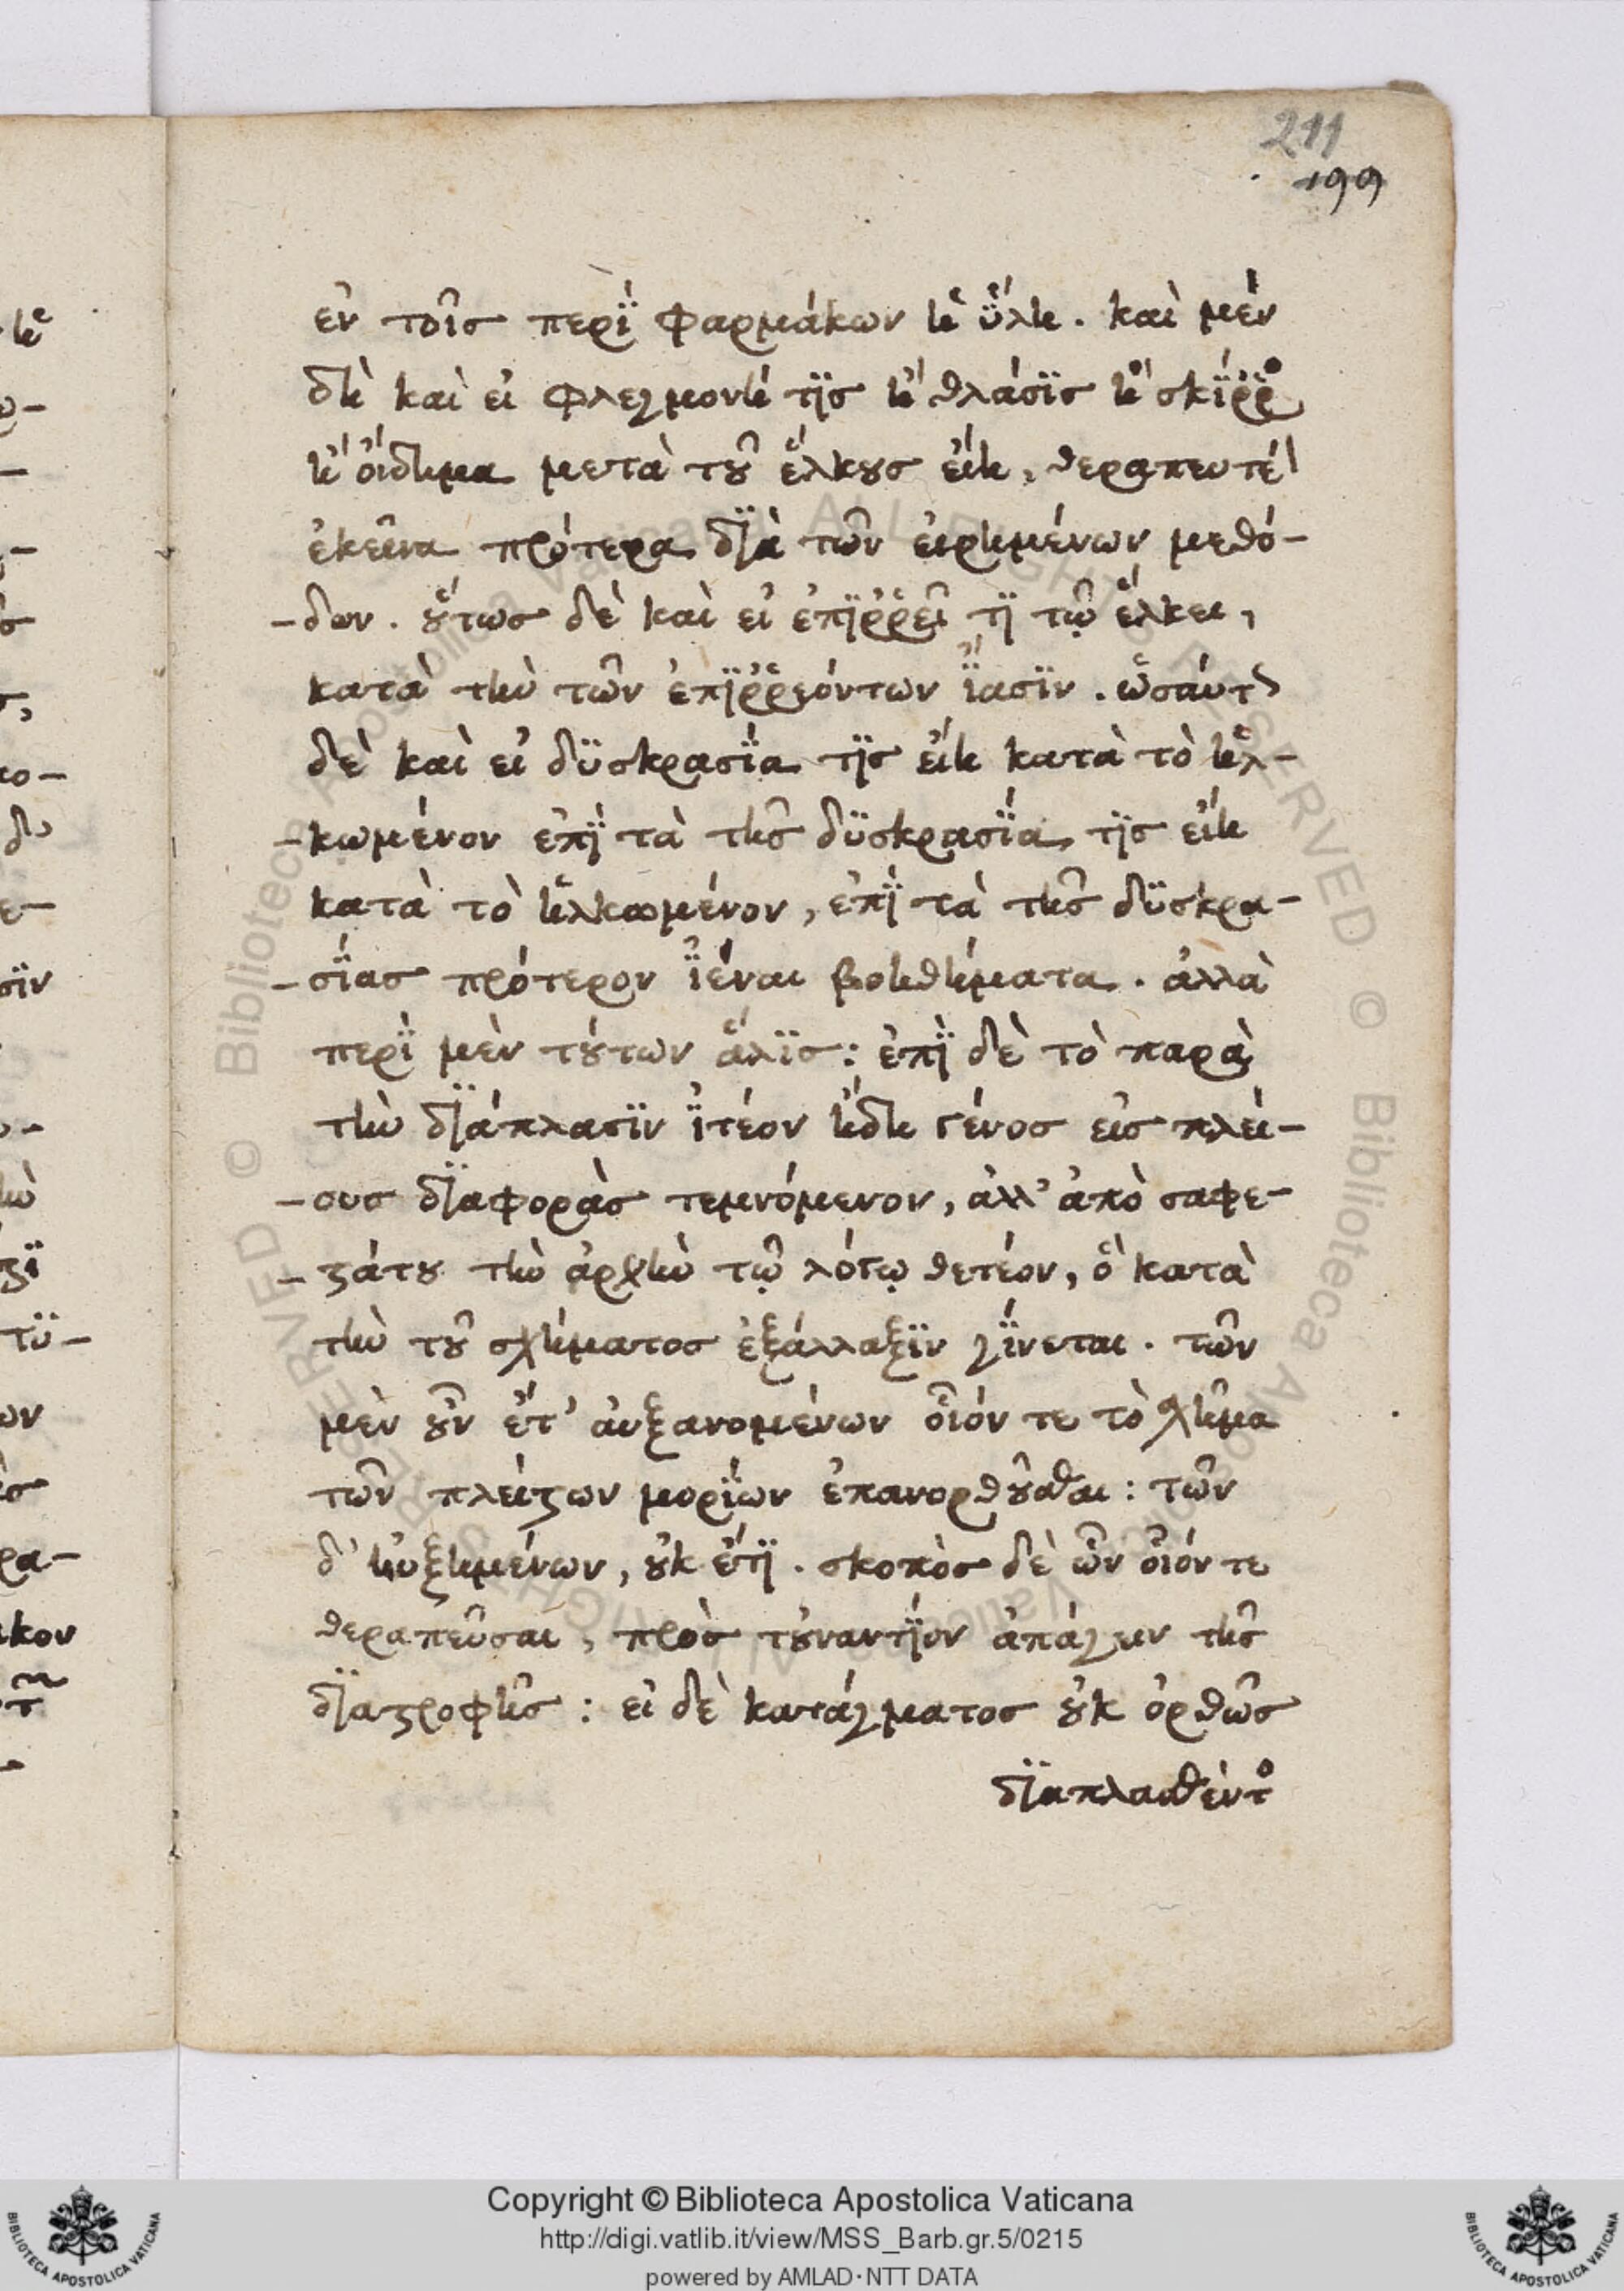 211
199
ἐν τοῖσ περὶ φαρμάκων ἡ ὕλη. καὶ μέν
δὴ καὶ εἰ φλεγμονή τισ ἢ θλάσισ ἢ σκίῤῥος
ἢ οἴδημα μετὰ τοῦ ἕλκουσ εἴη, θεραπευτέ
ἐκεῖνα πρότερα διὰ τῶν εἰρημένων μεθό-
-δων. οὕτωσ δὲ καὶ εἰ ἐπιῤῥεῖ τι τῷ ἕλκει,
κατὰ τὴν τῶν ἐπιῤῥεόντων ἴασιν. ὡσαύτως
δὲ καὶ εἰ δυσκρασία τισ εἴη κατὰ τὸ ἡλ-
-κωμένον ἐπὶ τὰ τῆσ δυσκρασία τισ εἴη
κατὰ τὸ ἡλκωμένον, ἐπὶ τὰ τῆσ δυσκρα-
-σίασ πρότερον ἰέναι βοηθήματα. ἀλλὰ
περὶ μὲν τούτων ἅλισ: ἐπὶ δὲ τὸ παρὰ
τὴν διάπλασιν ἰτέον ἤδη γένοσ εἰσ πλεί-
-ουσ διαφορὰσ τεμνόμενον, ἀλλ' ἀπὸ σαφε-
-στάτου τὴν ἀρχὴν τῷ λόγῳ θετέον, ὃ κατὰ
τὴν τοῦ σχήματοσ ἐξάλλαξιν γίνεται. τῶν
μὲν οὖν ἔτ' αὐξανομένων οἷόν τε τὸ σχῆμα
τῶν πλείστων μορίων ἐπανορθοῦσθαι: τῶν
δ' ηὐξημένων, οὐκ ἔτι. σκοπὸσ δὲ ὧν οἷόν τε
θεραπεῦσαι, πρὸσ τοὐναντίον ἀπάγειν τῆσ
διαστροφῆσ: εἰ δὲ κατάγματοσ οὐκ ὀρθῶσ
διαπλασθέντος
Copyright © Biblioteca Apostolica Vaticana
http://digi.vatlib.it/view/MSS_Barb.gr.5/0215
powered by AMLAD·NTT DATA